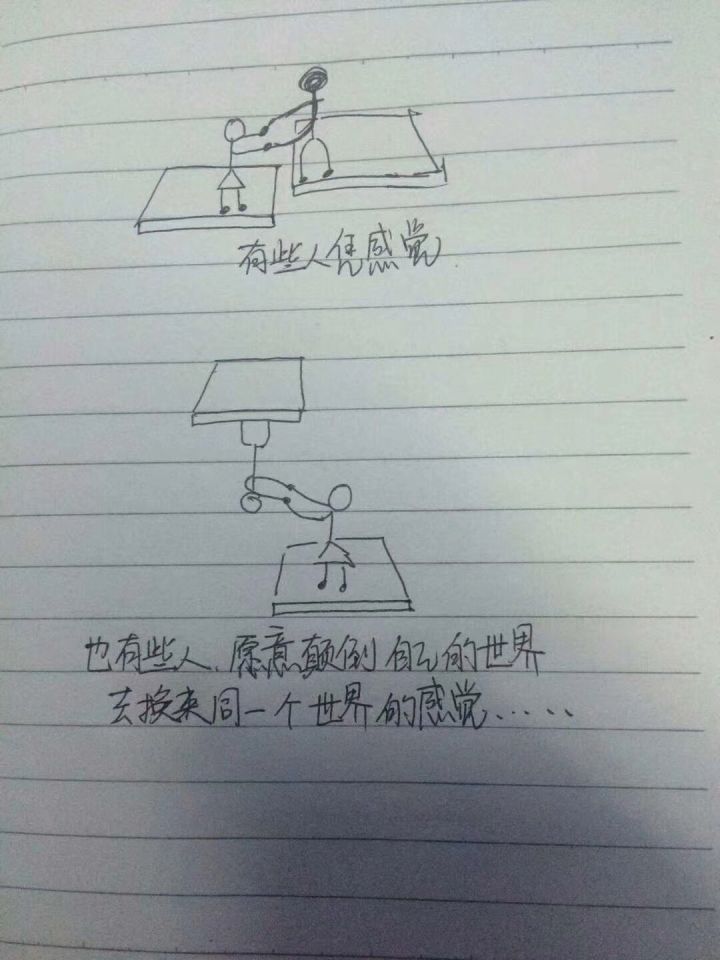 有些人凭感觉.
也有些人、愿意颠倒自己的世界
去换来同一个世界的感觉......